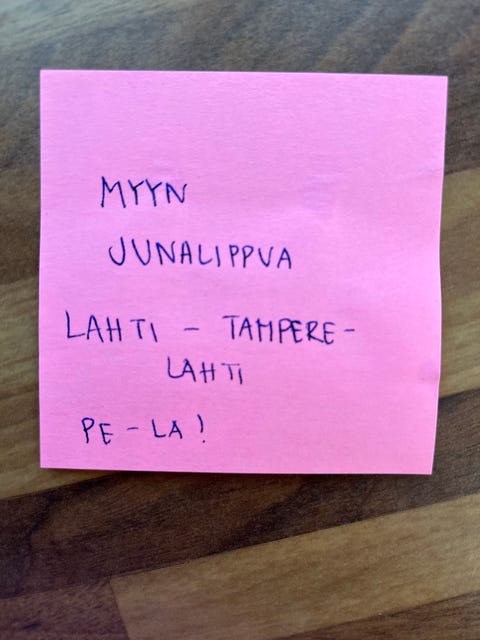 MYYN
JUNALIPPUA
LAHTI – TAMPERE –
LAHTI
PE – LA!